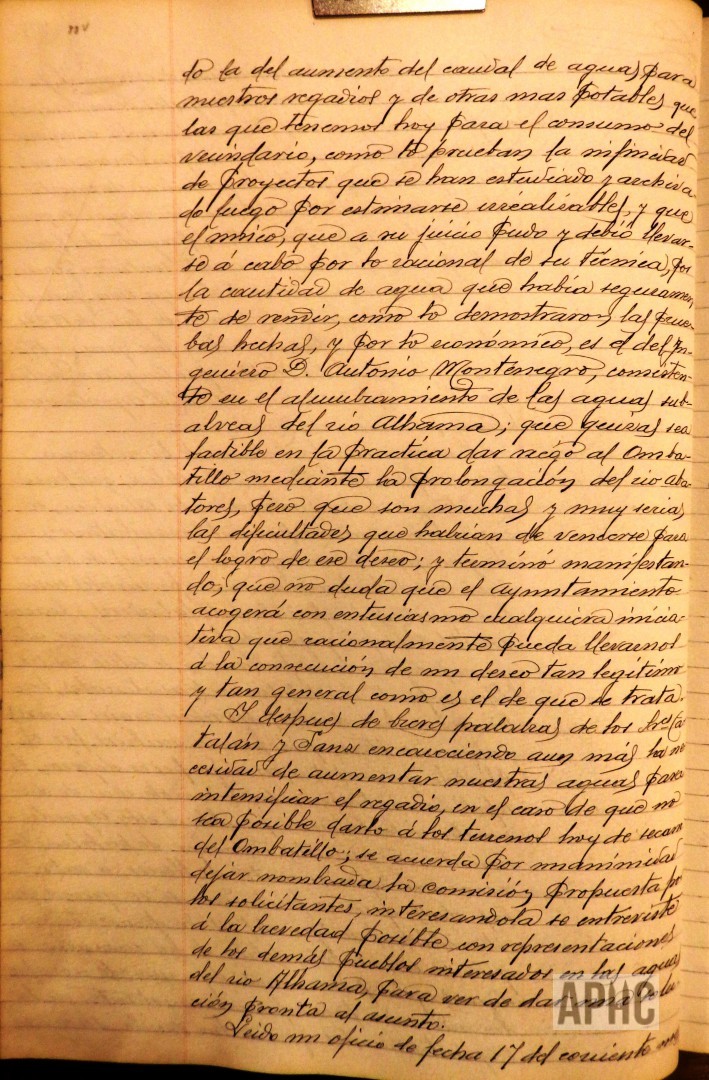 do la del aumento del caudal de aguas para
nuestros regadios y de otras mas potables que
las que tenemos hoy para el consumo del
vecindario, como lo prueban la infinidad
de proyectos que se han estudiado y archiva-
do luego por estimarse irrealizables, y que
el unico, que a su juicio pudo y debió llevar-
se á cabo por lo racional de su técnica, por
la cantidad de agua que había seguramen-
te de rendir, como lo demostraron las prue-
bas hechas, y por lo económico, es el del In-
geniero D. Antonio Montenegro, consisten-
te en el alumbramiento de las aguas sub-
alveas del rio Alhama; que quizás sea
factible en la practica dar riego al Omba-
tillo mediante la prolongación del rio Aña-
tores, pero que son muchas y muy serias
las dificultades que habrían de vencerse para
el logro de ese deseo; y terminó manifestan-
do, que no duda que el Ayuntamiento
acogerá con entusiasmo cualquiera inicia-
tiva que racionalmente pueda llevarnos
á la consecución de un deseo tan legítimo
y tan general como es el de que se trata.
Y despues de breves palabras de los Sres Ca-
talán y Sanz encareciendo aun más la ne
cesidad de aumentar nuestras aguas para
intensificar el regadio, en el caso de que no
sea posible darlo á los terrenos hoy de secano
del Ombatillo; se acuerda por unanimidad
dejar nombrada la comisión propuesta por
los solicitantes, interesandola se entreviste
á la brevedad posible con representaciones
de los demás pueblos interesados en las aguas
del rio Alhama, para ver de dar una solu
ción pronta al asunto.
Leido un oficio de fecha 17 del corriente
APHC